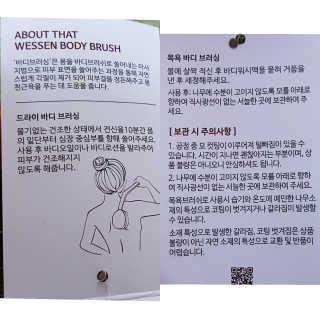 ABOUT THAT
WESSEN BODY BRUSH
'바디브러싱'은 몸을 바디브러쉬로 쓸어내는 마사
지법으로 피부 표면을 쓸어주는 과정을 통해 자연
스럽게 각질이 제거 되어 피부결을 정돈해주고 몽
친근육을 푸는 데 도움을 줍니다.
드라이 바디 브러싱
물기없는 건조한 상태에서 전신을10분간 몸
의 말단부터 심장 중심부를 향해 쓸어주세요.
사용 후 바디오일이나 바디로션을 발라주어
피부가 건조해지지
않도록 해줍니다.
목욕 바디 브러싱
물에 살짝 적신 후 바디워시액을 묻혀 거품을
낸 후 세정해주세요.
사용 후: 나무에 수분이 고이지 않도록 모를 아래로
향하여 직사광선이 없는 서늘한 곳에 보관하여 주
세요.
[ 보관 시 주의사항 ]
1. 공정 중 모 컷팅이 이루어져 털빠짐이 있을 수
있습니다. 시간이 지나면 괜찮아지는 부분이며, 상
품 불량은 아니오니 안심하셔도 됩니다.
2. 나무에 수분이 고이지 않도록 모를 아래로 향하
여 직사광선이 없는 서늘한 곳에 보관하여 주세요.
목욕브러쉬로 사용시 습기와 온도에 예민한 나무소
재의 특성으로 코팅이 벗겨지거나 갈라짐이 발생할
수 있습니다.
소재 특성으로 발생한 갈라짐, 코팅 벗겨짐은 상품
불량이 아닌 자연 소재의 특성으로 교환 및 반품이
어렵습니다.